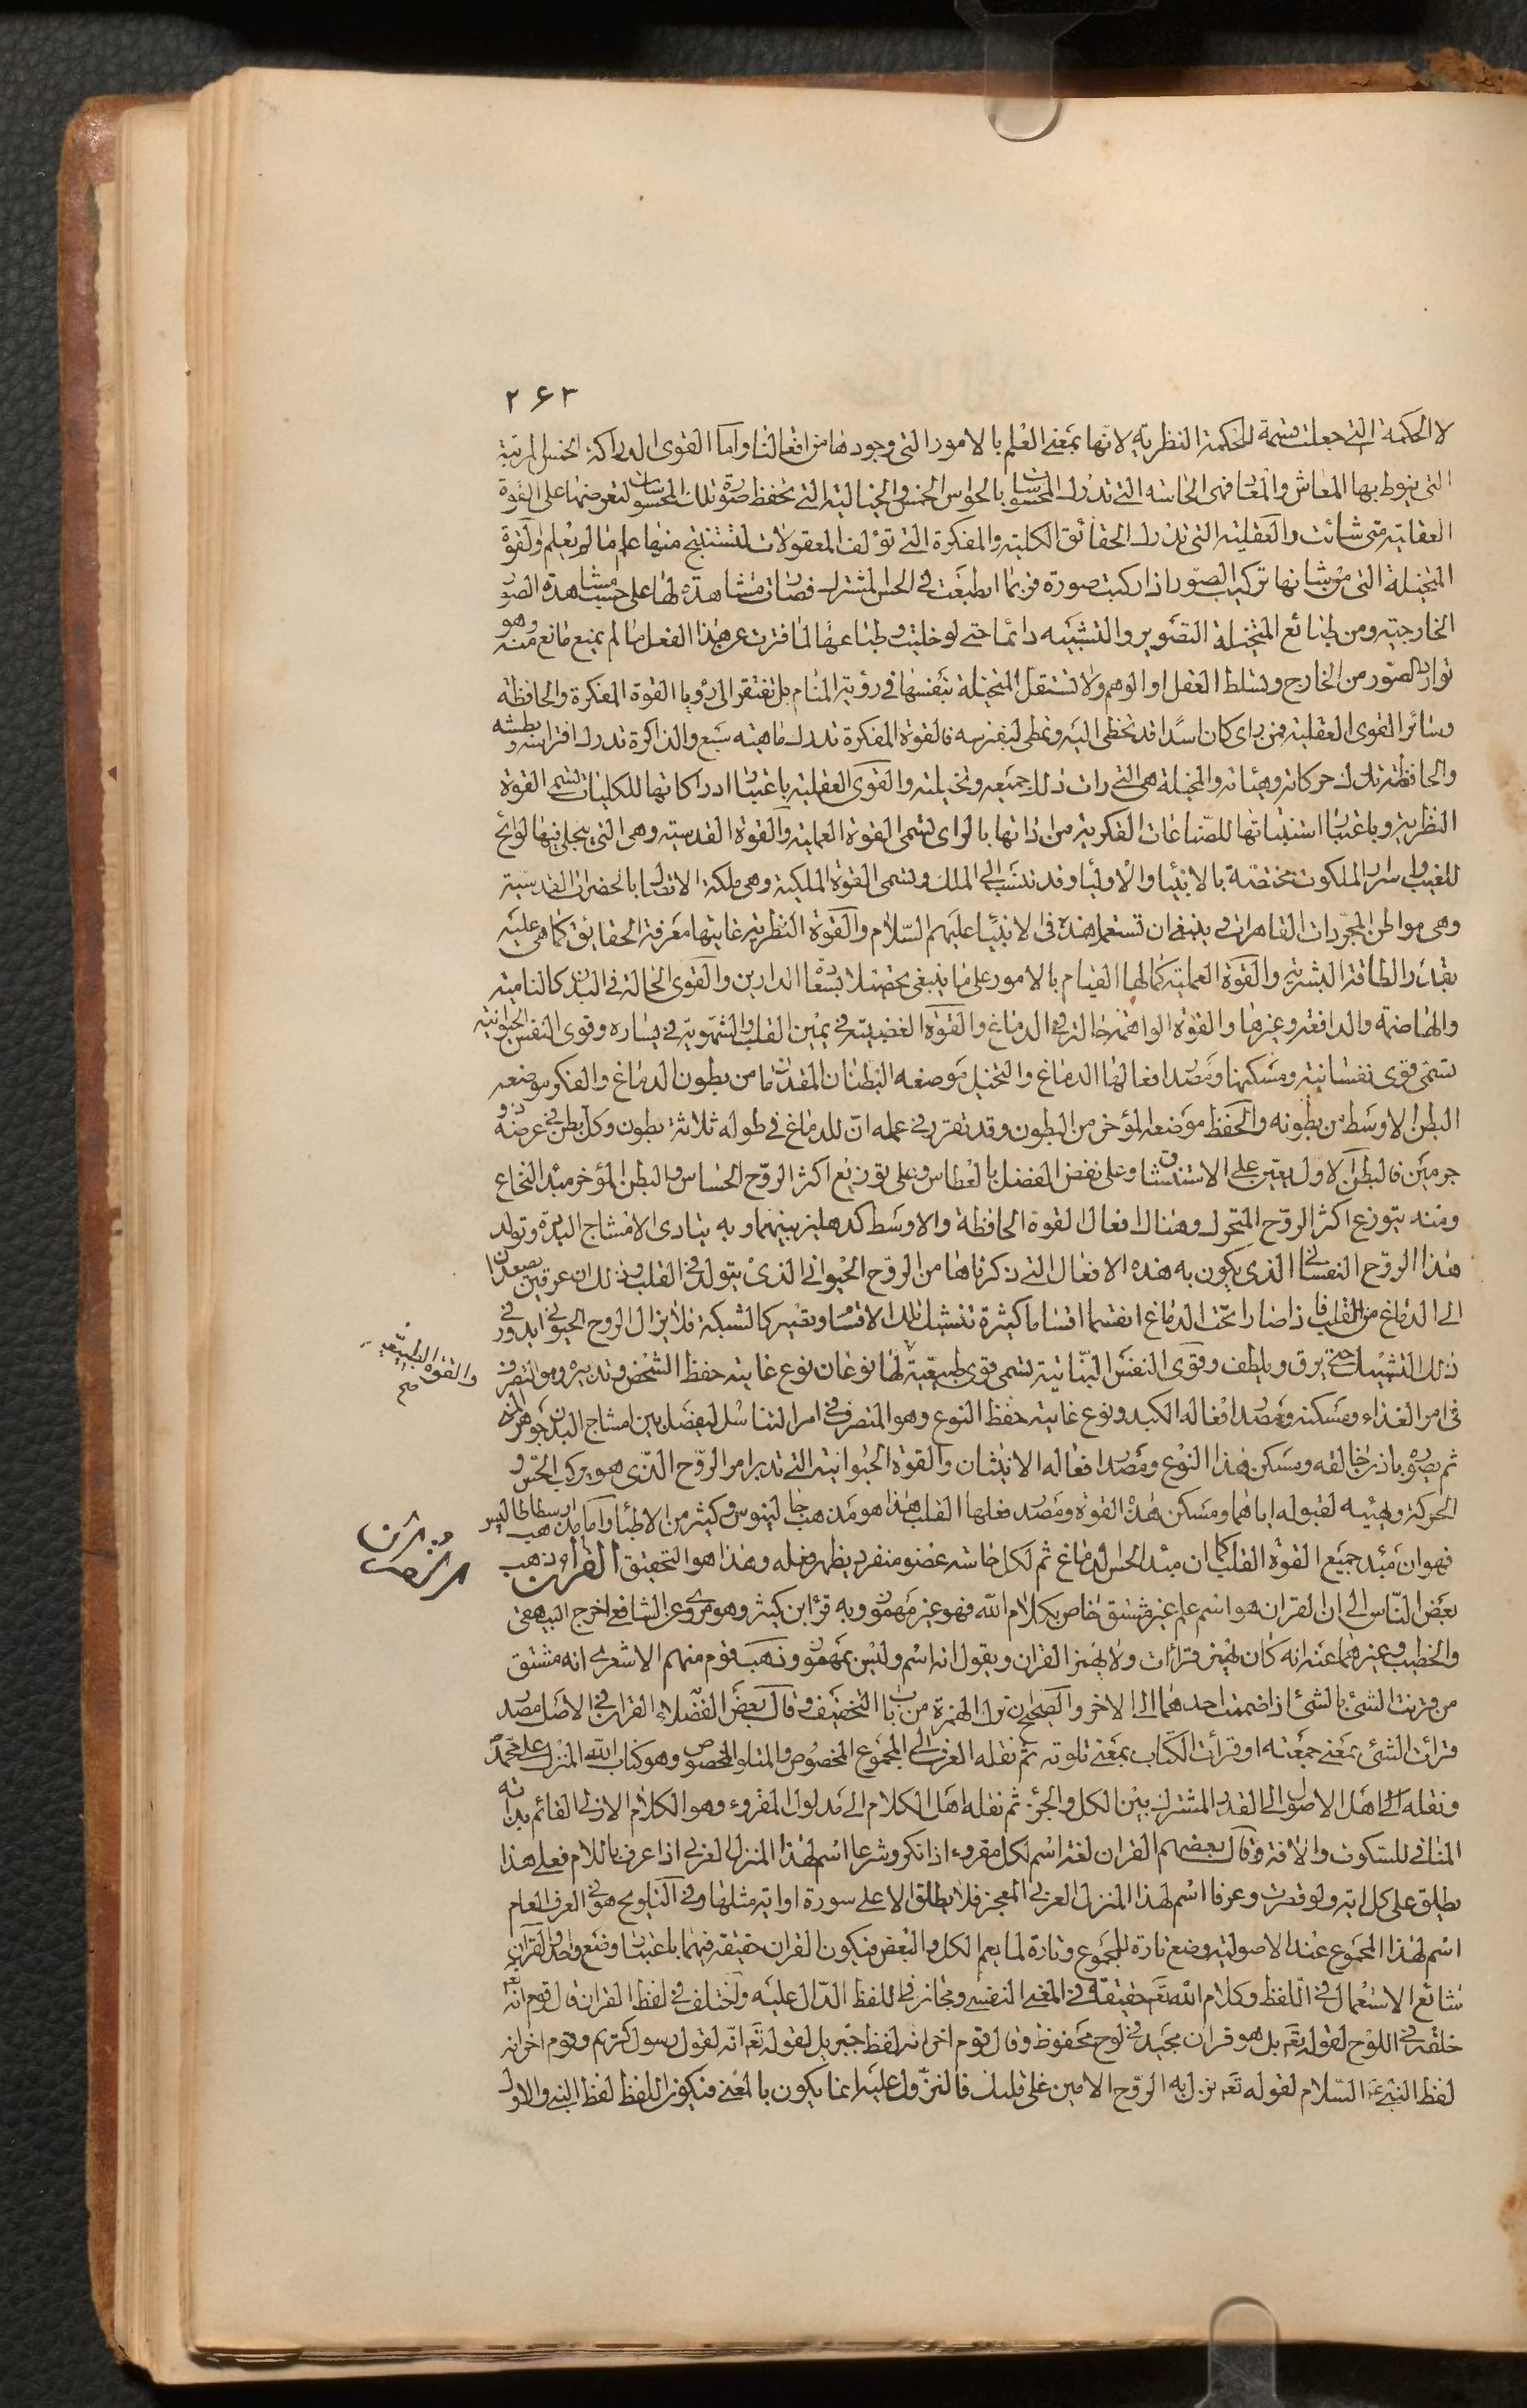 ٢٦٣
لا الحكمة التي جعلت قسمة للحكمة النظرية لانها بمعنى العلم بالامور التى وجودها من افعالنا واما القوى الدراكة الخمس المرتبة
التى ينوط بها المعاش والمعاد فهى الحاسه التى تدرك المحسوسات بالحواس الخمس والخيالية التى تحفظ صورة تلك المحسوسات لتعرضها على القوة
العقلية متى شائت والعقلية التى تدرك الحقائق الكلية والمفكرة التى تؤلف المعقولات لتستنتج منها علم ما لم يعلم والقوة
المتخيلة التى من شانها تركيب الصور اذا ركبت صورة فربما انطبعت فى الحس المشترك فصارت مشاهدة لها على حسب مشاهدة الصور
الخارجية ومن طبائع المتخيلة التصوير والتشبيه دائما حتى لو خليت وطباعها لما فترت عن هذا الفعل ما لم يمنع مانع منه وهو
توارد الصور من الخارج وتسلط العقل او الوهم ولا تستقل المتخيلة بنفسها فى رؤية المنام بل تفتقر الى رؤيا القوة المفكرة والحافظة
وسائر القوى العقلية فمن راى كان اسدا قد تخطى اليه وتمطى ليفترسه فالقوة المفكرة تدرك ماهية سبع والذاكرة تدرك افتراسه وبطشه
والحافظة تدرك حركاته وهيئاته والمخيلة هى التى رات ذلك جميعه وتخيلته والقوى العقلية باعتبار ادراكاتها للكليات تسمى القوة
النظرية وباعتبار استنباتها للصناعات الفكرية من اذاتها بالراى تسمى القوة العملية والقوة القدسية وهى التى يتجلى فيها لوائح
الغيب واسرار الملكوت مختصة بالانبياء والاولياء وقد تنسب الى الملك وتسمى القوة الملكية وهى ملكة الاتصال بالحضرات القدسية
وهى مواطن المجردات القاهرات ينبغى ان تستعمل هذه فى الانبياء عليهم السلام والقوة النظرية غايتها معرفة الحقايق كما هى عليه
بقدر الطاقة البشرية والقوة العملية كمالها القيام بالامور على ما ينبغى تحصيلا لسعادة الدارين والقوى الحالة فى البدن كالنامية
والهاضمة والدافعة وغيرها والقوة الواهمة حالة فى الدماغ والقوة الغضبية فى يمين القلب والشهوية فى يساره وقوى النفس الحيوانية
تسمى قوى نفسانية ومسكنها ومصدر افعالها الدماغ والتخيل موضعه البطنان المقدمان من بطون الدماغ والفكر موضعه
البطن الاوسط من بطونه والحفظ موضعه المؤخر من البطون وقد تقرر فى عمله ان للدماغ فى طوله ثلاثة بطون وكل بطن فى عرضه ذو
جزئين فالبطن الاول يعين على الاستنشاق وعلى نفض الفضل بالعطاس وعلى توزيع اكثر الروح الحساس والبطن المؤخر مبدا النخاع
ومنه يتوزع اكثر الروح المتحرك وهناك افعال القوة الحافظة والاوسط كدهليز بينهما وبه يتادى الامشاج اليه وتولد
هذا الروح النفسانى الذى يكون به هذه الافعال التى ذكرناها من الروح الحيوانى الذى يتولد فى القلب وذلك ان عرقين يصعدان
الى الدماغ من القلب فاذا صارا تحت الدماغ انقسما اقساما كثيرة تتشبك تلك الاقسام وتصير كالشبكة فلا يزال الروح الحيوانى يدور فى
ذلك التشبيك حتى يرق ويلطف وقوى النفس النباتية تسمى قوى طبيعية لها نوعان نوع غايته حفظ الشخص وتدبيره وهو المتصرف
والقوة الطبيعية
صح
فى امر الغذاء ومسكنه ومصدر افعاله الكبد ونوع غايته حفظ النوع وهو المتصرف فى امر التناسل ليفصل من امشاج البدن جوهر المنى
ثم يصوره باذن خالقه ومسكن هذا النوع ومصدر افعاله الانثيان والقوة الحيوانية التى تدبر امر الروح الذى هو مركب الحس و
الحركة وتهيئه لقبوله اياهما ومسكن هذه القوة ومصدر فعلها القلب هذا هو مذهب جالينوس وكثير من الاطباء واما مذهب ارسطاطاليس
فهو ان مبدا جميع القوة القلب كما ان مبدا الحس الدماغ ثم لكل حاسه عضو منفرد يظهر فعله وهذا هو التحقيق القرآن ذهب
بعض الناس الى ان القران هو اسم علم غير مشتق خاص بكلام الله فهو غير مهموز وبه قرأ ابن كثير وهو مروى عن الشافعى اخرج البيهقى
والخطيب وغيرهما عنه انه كان يهمز قرأت ولا يهمز القران ويقول انه اسم وليس بمهموز وذهب قوم منهم الاشعرى انه مشتق
من قرنت الشئ بالشئ اذا ضممت احدهما الى الاخر والصحيح ان ترك الهمزة من باب التخفيف وقال بعض الفضلاء القران فى الاصل مصدر
قرأت الشئ بمعنى جمعته او قرأت الكتاب بمعنى تلوته ثم نقله العرف الى المجموع المخصوص والمتلو المخصوص وهو كتاب الله المنزل على محمد
ونقله الى اهل الاصول الى القدر المشترك بين الكل والجزء ثم نقله اهل الكلام الى مدلول المقروء وهو الكلام الازلى القائم بذاته
المنافى للسكوت والافة وقال بعضهم القران لغة اسم لكل مقروء اذا نكر وشرعا اسم لهذا المنزل العربى اذا عرف باللام فعلى هذا
يطلق على كل اية ولو قصرت وعرفا اسم لهذا المنزل العربى المعجز فلا يطلق الا على سورة او اية مثلها وفى التلويح هو فى العرف العام
اسم لهذا المجموع عند الاصولية وضع تارة للمجموع وتارة لما يعم الكل والبعض فيكون القران حقيقة فيهما باعتبار وضع واحد والقران
شائع الاستعمال فى اللفظ وكلام الله تعالى حقيقة فى المعنى النفسى ومجاز فى اللفظ الدال عليه واختلف فى لفظ القران قال قوم انه
خلقه فى اللوح لقوله تعالى بل هو قران مجيد فى لوح محفوظ وقال قوم اخر انه لفظ جبريل لقوله تعالى انه لقول رسول كريم وقوم اخر انه
لفظ النبى عليه السلام لقوله تعالى نزل به الروح الامين على قلبك فالنزول عليه انما يكون بالمعنى فيكون اللفظ لفظ النبى والاول